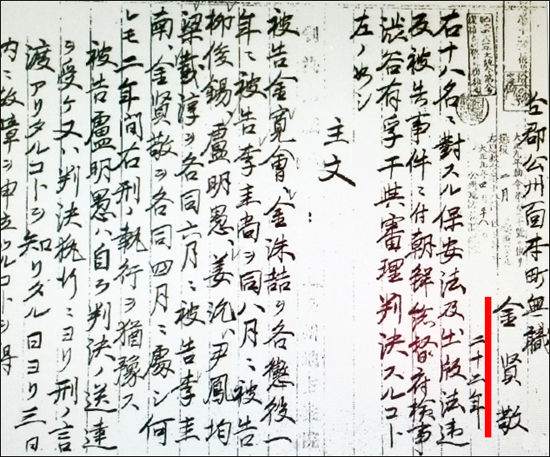 仝郡公州面本町無職
金賢敬
二十二年
右十八名ニ對スル保安法及出版法違
反被告事件ニ付朝鮮総督府検事
渋谷有孚干與審理判決スルコト
左ノ如シ
主文
被告金寛會、金洙喆ヲ各懲役一
年ニ被告李圭尚ヲ同八月ニ被告
柳俊錫、盧明愚、姜沇、尹鳳均
梁載淳ヲ各同六月ニ被告李圭
南、金賢敬ヲ各同四月ニ處シ何
レモ二年間右刑ノ執行ヲ猶豫ス
被告盧明愚ハ自ラ判決ノ送達
ヲ受ケ又ハ判決執行ニヨリ刑ノ言
渡アリタルコトヲ知リタル日ヨリ三日
内ニ故障ヲ申立ツルコトヲ得